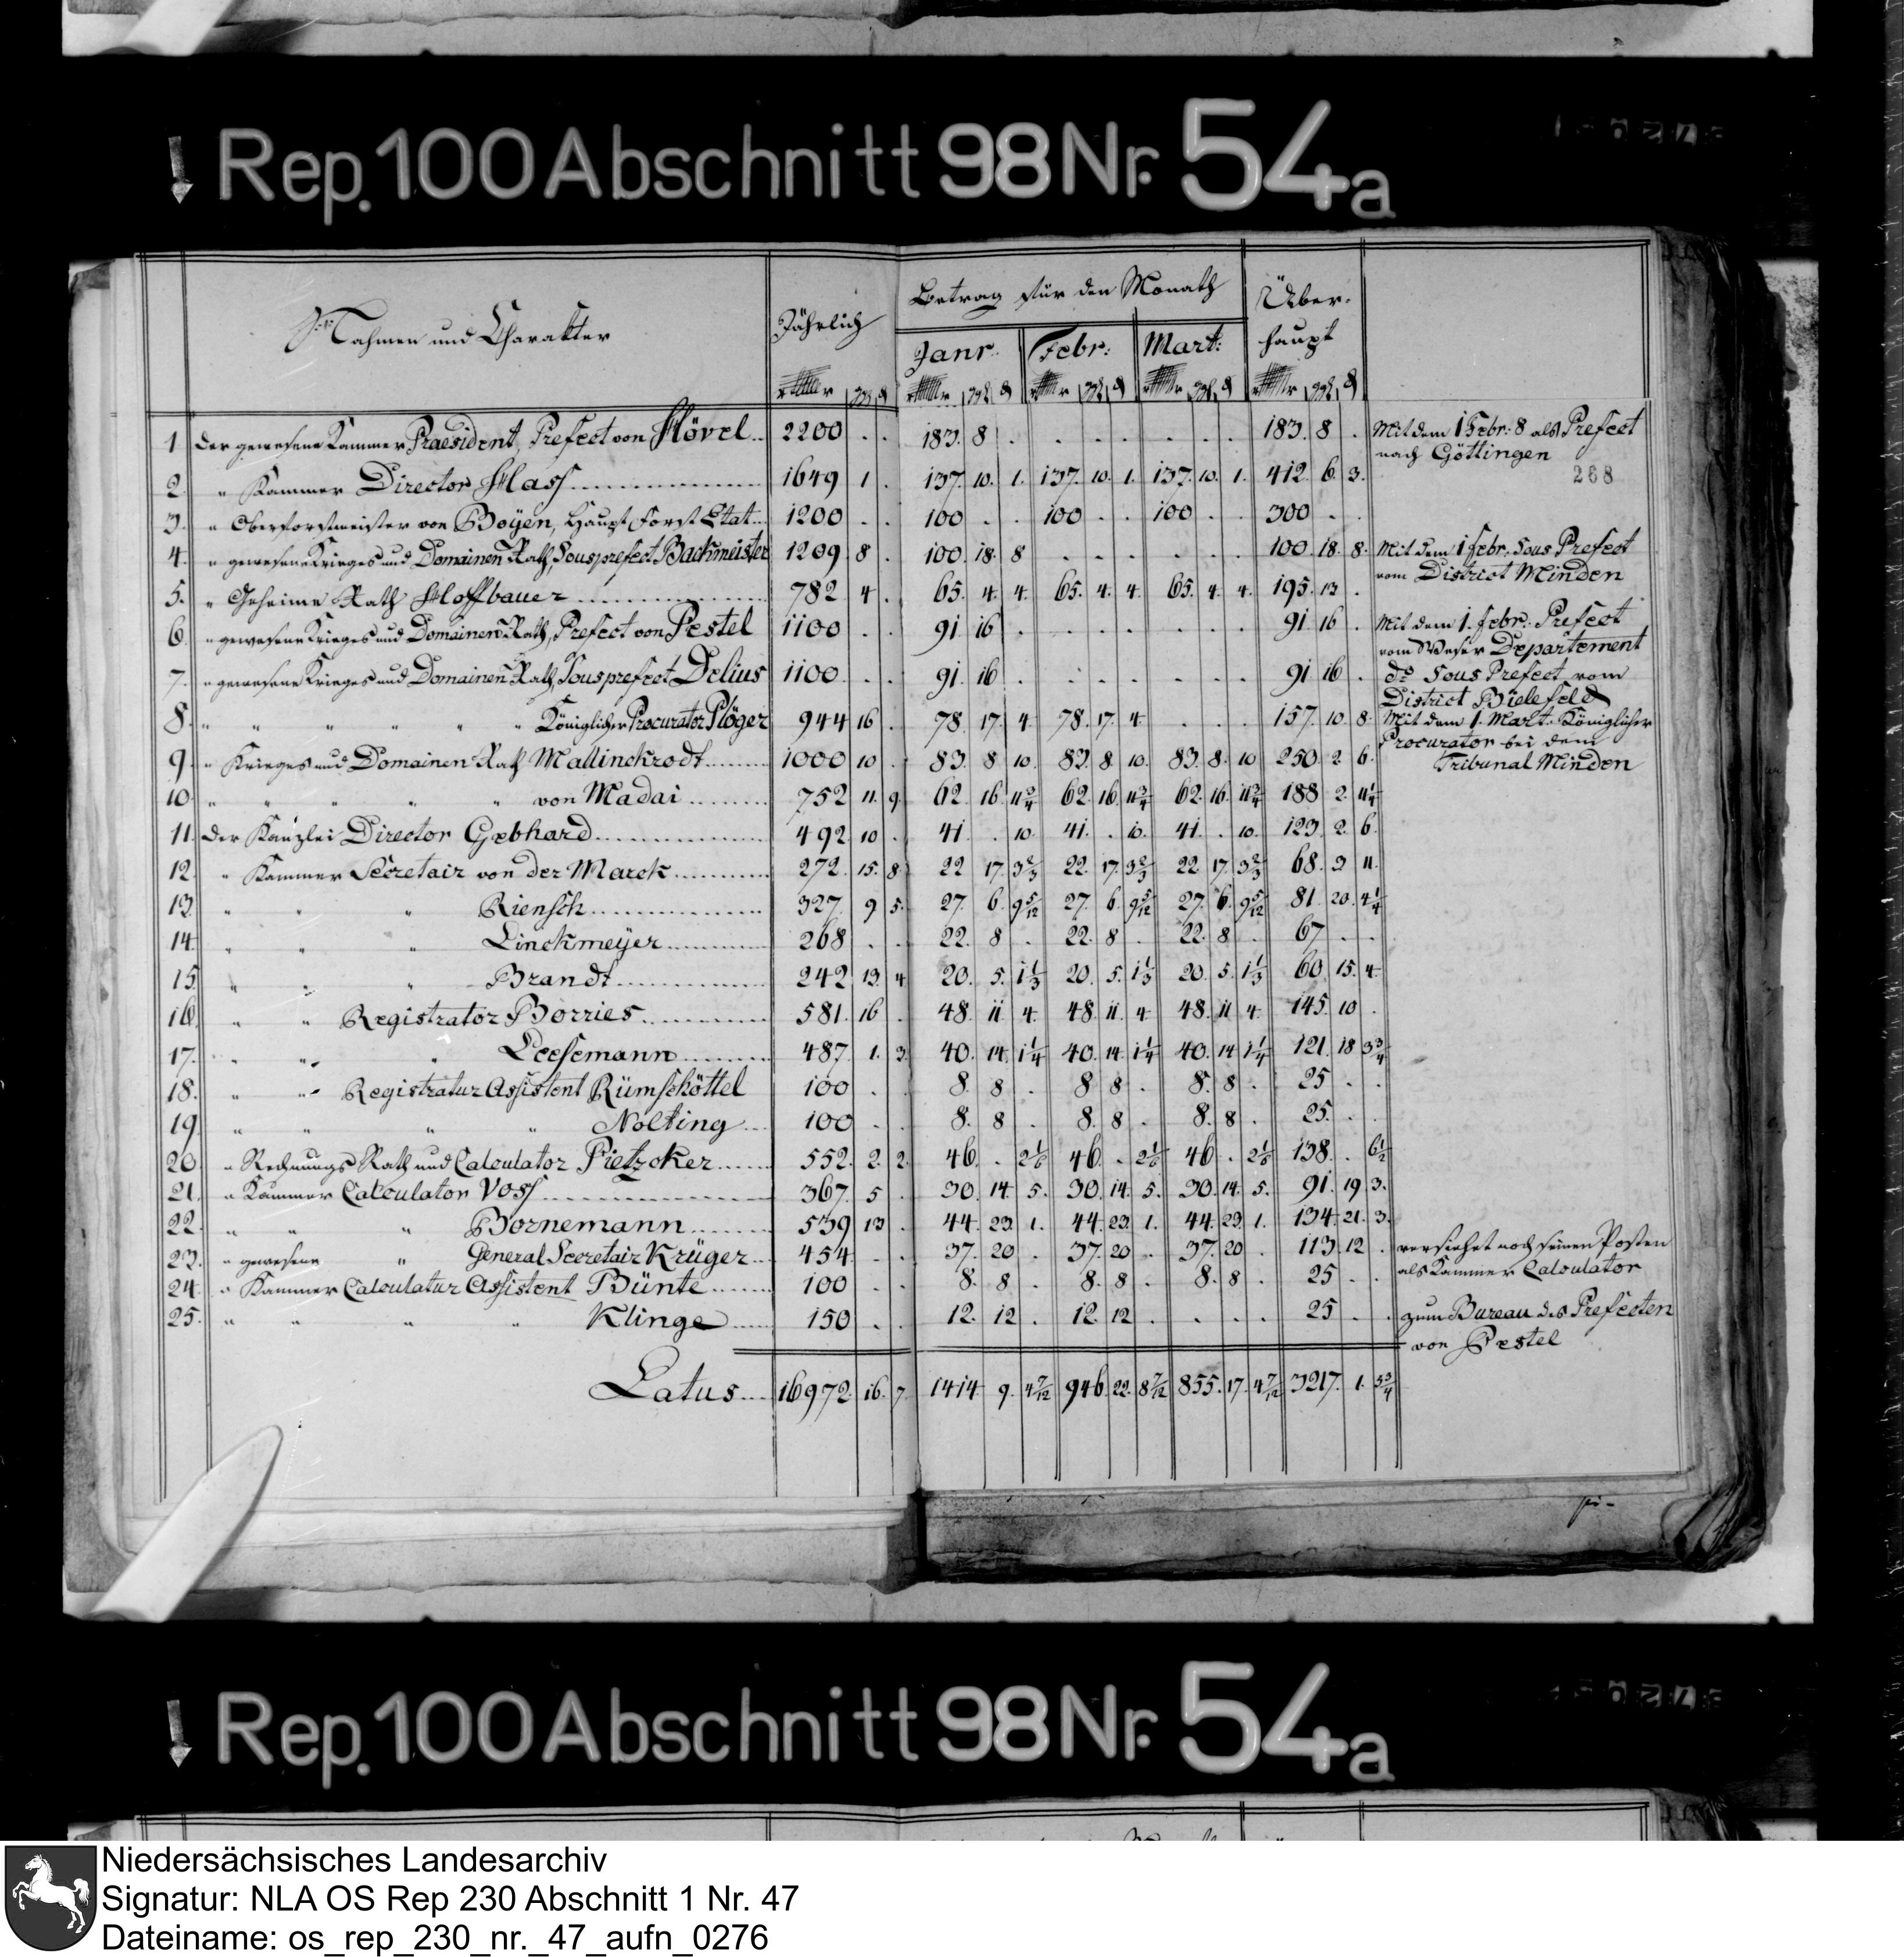 Rep. 100 Abschnitt 98 Nr. 54a
Nahmen und Charakter
Jährlich
Betrag für den Monath
Über-
haupt
Janr. Febr: Mart:
1 Der gewesene Kammer Praesident, Prefect von Hövel.. 2200 . . 183. 8 . . . . . . . 183. 8 . Mit dem 1 Febr: 8 als Prefect
nach Göttingen
2. " Kammer Director Hass 1649 1 . 137. 10. 1. 137. 10. 1. 137. 10. 1. 412. 6. 3.
268
3. " Oberforstmeister von Boÿen, Haupt Forst Etat.. 1200 . . 100 . . 100 . . 100 . . 300 . .
4. " gewesene Krieges und Domainen Rath, Sousprefect Backmeister 1209 8 . 100. 18. 8 . . . . . . 100. 18. 8. Mit dem 1 febr. Sous Prefect
vom District Minden
5. " Geheime Rath Hoffbauer 782 4 . 65. 4. 4. 65. 4. 4. 65. 4. 4. 195. 13 .
6. " gewesene Krieges und Domainen Rath, Prefect von Pestel 1100 . . 91. 16 . . . . . . . 91. 16 . Mit dem 1. febr. Prefect
vom Weser Departement
7. " gewesene Krieges und Domainen Rath, Sousprefect Delius 1100 . . 91. 16 . . . . . . . 91 16 . do Sous Prefect vom
District Bielefeld
8. " " " " " Königlicher Procurator Plöger 944 16 . 78. 17. 4. 78. 17. 4. . . . 157. 10. 8. Mit dem 1. Mart: Königlicher
Procurator bei dem
Tribunal Minden
9. " Krieges und Domainen Rath Mallinckrodt 1000 10 . 83. 8 10. 83. 8. 10. 83. 8. 10 250. 2. 6.
10. " " " " " von Madai 752 11. 9. 62. 16. 11 3/4 62. 16. 11 3/4 62. 16. 11 3/4 188 2. 11 1/4
11. Der Kanzlei Director Gebhard 492. 10 . 41. . 10. 41. . 10. 41. . 10. 123. 2. 6.
12. " Kammer Secretair von der Marck 272. 15. 8. 22 17. 3 2/3 22. 17. 3 2/3 22. 17. 3 2/3 68. 3 11.
13. " " " Riensch 327. 9 5. 27. 6. 9 5/12 27. 6. 9 5/12 27. 6. 9 5/12 81. 20. 4 1/4
14. " " " Linckmeÿer 268 . . 22. 8 . 22. 8 . 22. 8 . 67 . .
15. " " " Brandt 242 13. 4. 20. 5. 1 1/3 20. 5. 1 1/3 20. 5. 1 1/3 60. 15. 4.
16. " " Registrator Borries 581. 16 . 48. 11 4. 48. 11. 4. 48. 11 4. 145. 10 .
17. " " " Leesemann 487. 1. 3. 40. 14. 1 1/4 40. 14. 1 1/4 40. 14. 1 1/4 121. 18 3 3/4
18. " " Registratur Assistent Rümshöttel 100 . . 8. 8 . 8. 8 . 8. 8 . 25 . .
19. " " " " Nolting 100 . . 8. 8 . 8. 8 . 8. 8 . 25. . .
20. " Rechnungs Rath und Calculator Pietzcker 552. 2. 2. 46. . 2 1/6 46. . 2 1/6 46. . 2 1/6 138. . 6 1/2
21. " Kammer Calculator Voss 367. 5 . 30. 14. 5. 30. 14. 5. 30. 14. 5. 91. 19 3.
22. " " " Bornemann 539 13 . 44. 23. 1. 44. 23. 1. 44. 23. 1. 134. 21. 3.
23. " gewesene " General Secretair Krüger 454 . . 37. 20 . 37. 20 . 37. 20 . 113. 12 . versiehet noch seinen Posten
als Kammer Calculator
24. " Kammer Calculatur Assistent Bünte 100 . . 8. 8 . 8. 8 . 8. 8 . 25 . .
25. " " " " Klinge 150 . . 12. 12 . 12. 12 . . . . 25 . . zum Bureau des Prefecten
von Pestel
Latus 16972. 16. 7. 1414 9. 4 7/12 946. 22. 8 7/12 855. 17. 4 7/12 3217. 1. 5 3/4
Rep. 100 Abschnitt 98 Nr. 54a
Niedersächsisches Landesarchiv
Signatur: NLA OS Rep 230 Abschnitt 1 Nr. 47
Dateiname: os_rep_230_nr._47_aufn_0276